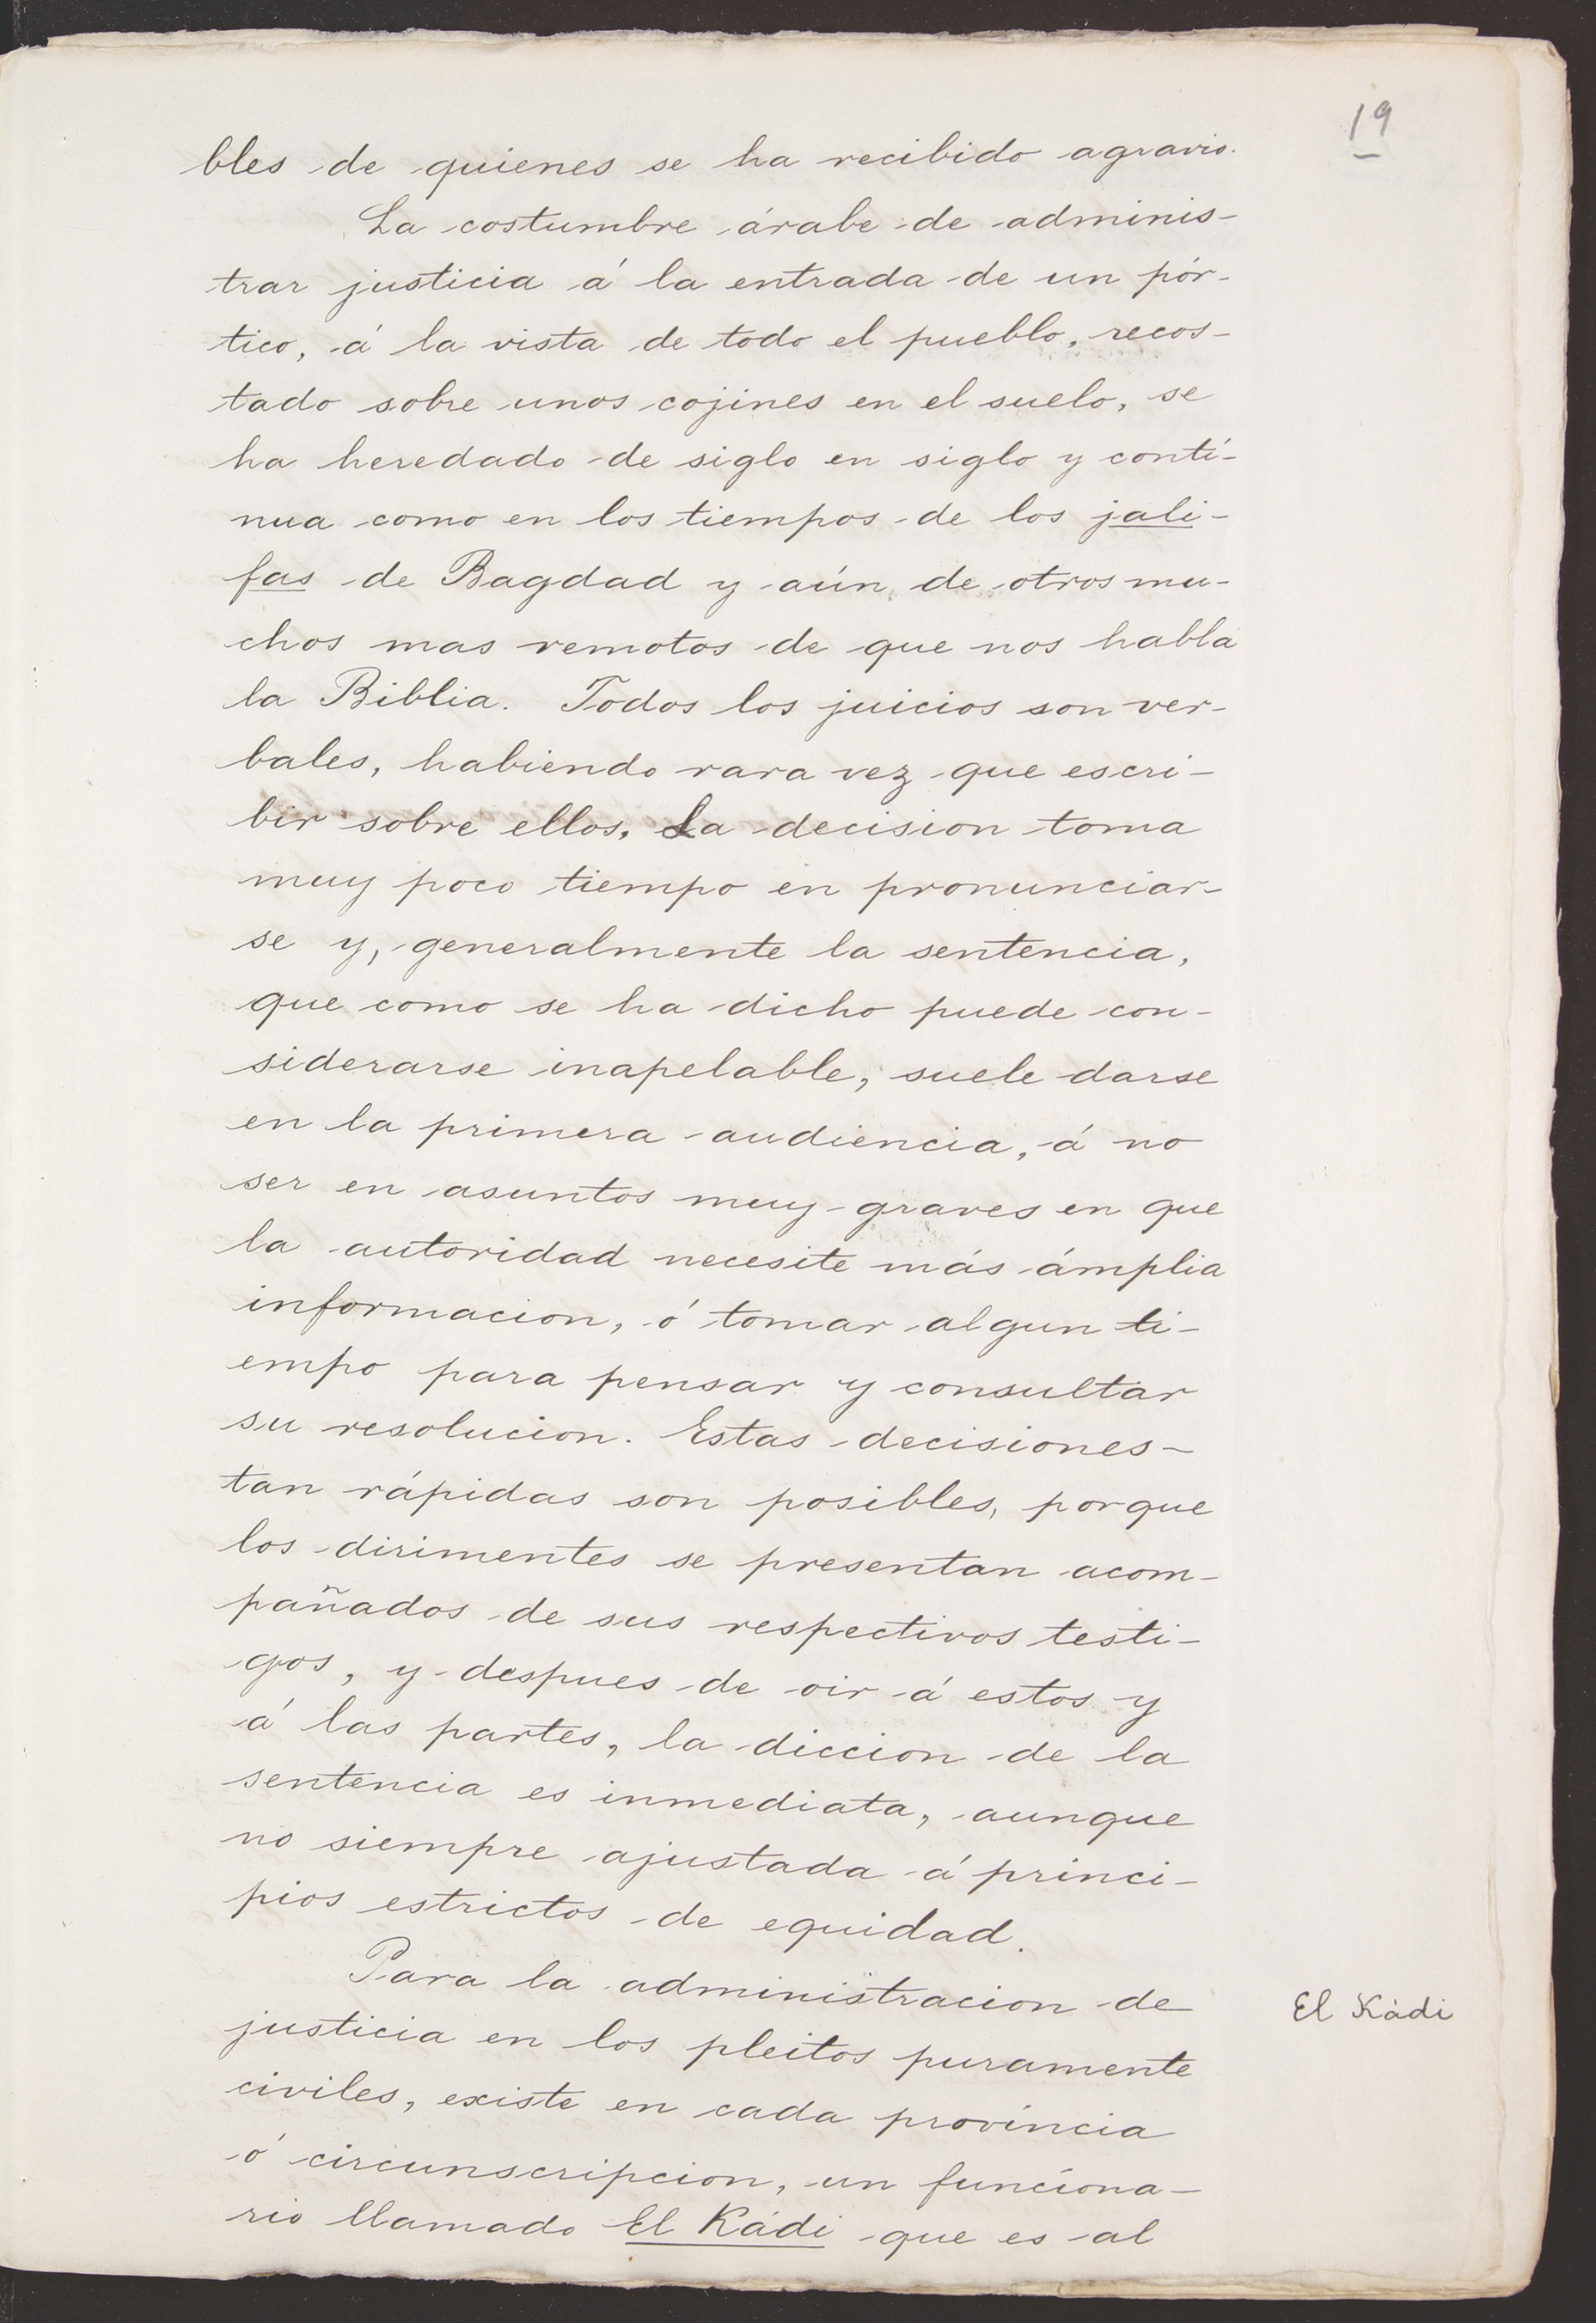 19
bles de quienes se ha recibido agravio.
La costumbre árabe de adminis-
trar justicia á la entrada de un pór-
tico, á la vista de todo el pueblo, recos-
tado sobre unos cojines en el suelo, se
ha heredado de siglo en siglo y conti-
nua como en los tiempos de los jali-
fas de Bagdad y aún de otros mu-
chos mas remotos de que nos habla
la Biblia. Todos los juicios son ver-
bales, habiendo rara vez que escri-
bir sobre ellos. La decision toma
muy poco tiempo en pronunciar-
se y, generalmente la sentencia,
que como se ha dicho puede con-
siderarse inapelable, suele darse
en la primera audiencia, á no
ser en asuntos muy graves en que
la autoridad necesite más ámplia
informacion, ó tomar algun ti-
empo para pensar y consultar
su resolucion. Estas decisiones-
tan rápidas son posibles, porque
los dirimentes se presentan acom-
pañados de sus respectivos testi-
gos, y despues de oir á estos y
á las partes, la diccion de la
sentencia es inmediata, aunque
no siempre ajustada á princi-
pios estrictos de equidad.
Para la administracion de
El Kádi
justicia en los pleitos puramente
civiles, existe en cada provincia
ó circunscripcion, un funciona-
rio llamado El Kádi que es al